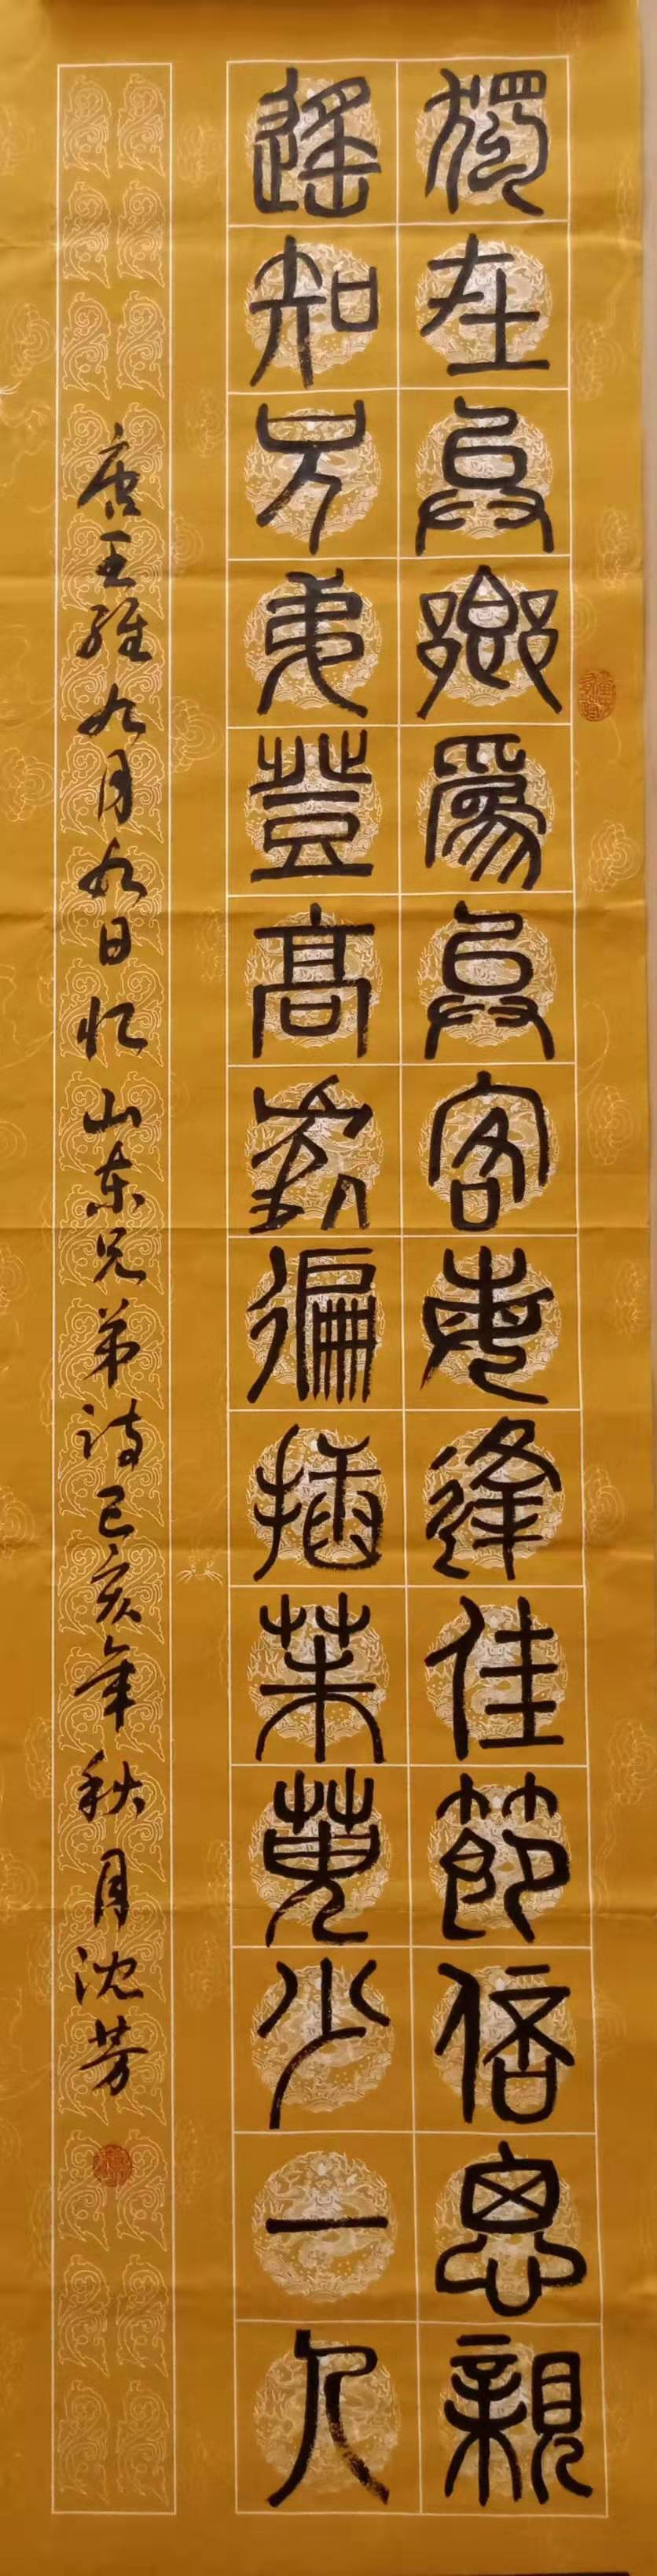 獨在異鄉爲異客每逢佳節倍思親
遙知兄弟登高處徧插茱萸少一人
唐王维九月九日忆山东兄弟诗己亥年秋月沈芳